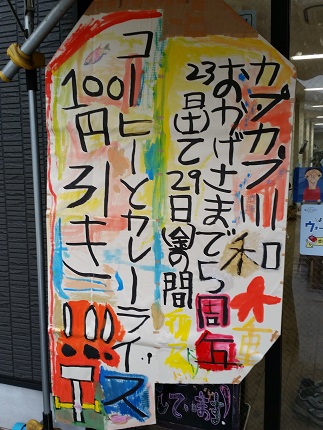 カプカプ川和
おかげさまで5周年
23日(土)〜29日(金)の間
コーヒーとカレーライス
100円引き
しています!